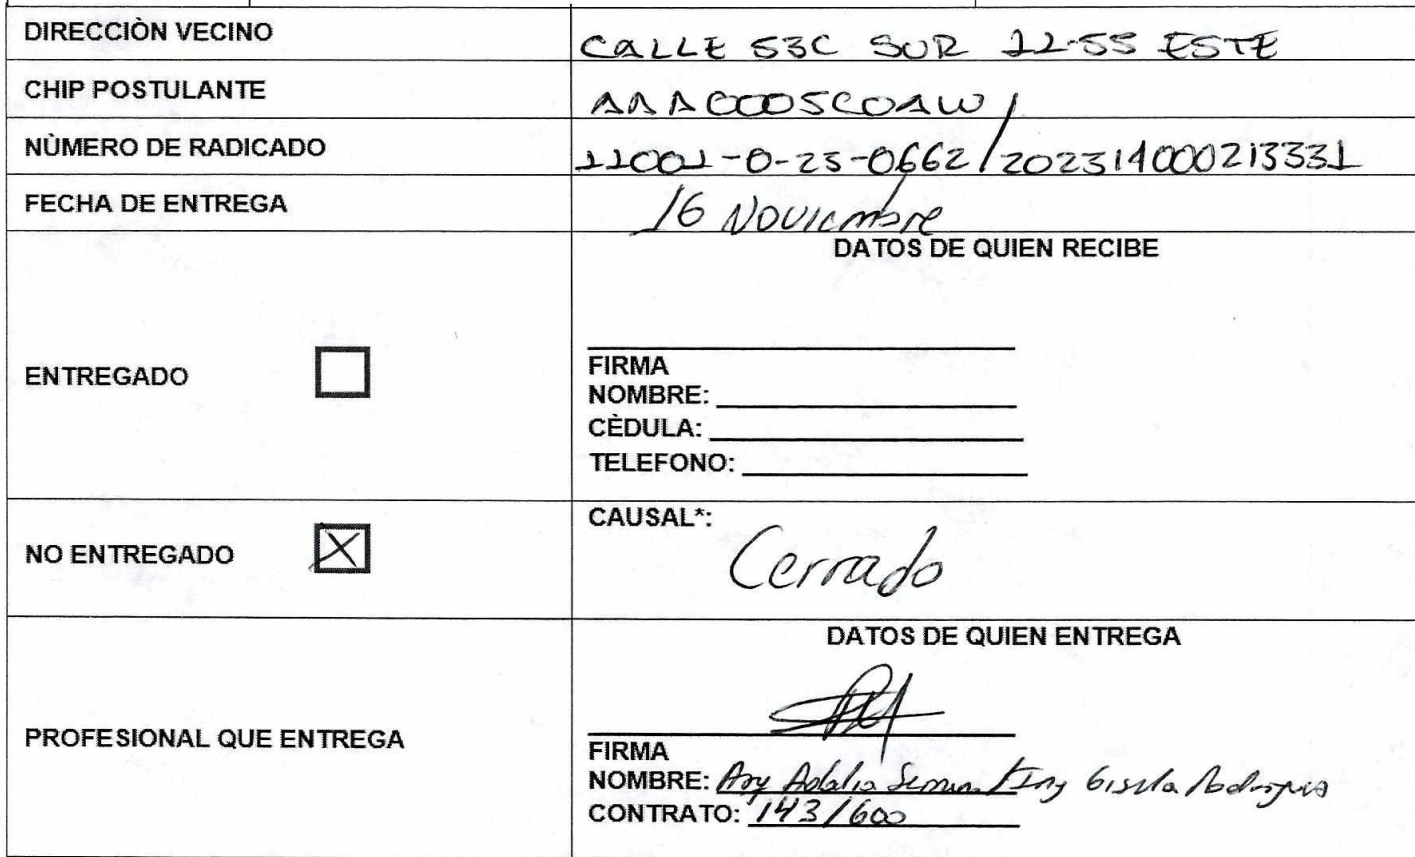 DIRECCIÒN VECINO CALLE 53C SUR 11-55 ESTE
CHIP POSTULANTE AAA0005COAW
NÙMERO DE RADICADO 11001-0-23-0662/202314000213331
FECHA DE ENTREGA 16 Noviembre
DATOS DE QUIEN RECIBE
ENTREGADO
FIRMA
NOMBRE:
CÈDULA:
TELEFONO:
NO ENTREGADO X
CAUSAL*:
Cerrado
DATOS DE QUIEN ENTREGA
PROFESIONAL QUE ENTREGA
FIRMA
NOMBRE: Adalia / Ing Gisela Rodriguez
CONTRATO: 143/600